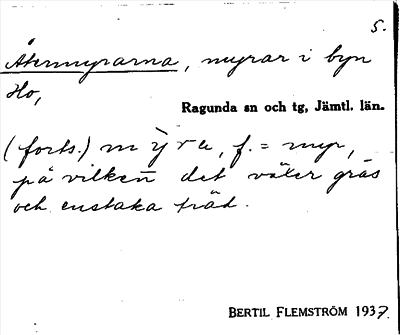 5.
Återmyrarna, myrar i byn
Ho,
Ragunda sn och tg, Jämtl. län.
(forts.) f. = myr,
på vilken det växer gräs
och enstaka träd.
BERTIL FLEMSTRÖM 1937.